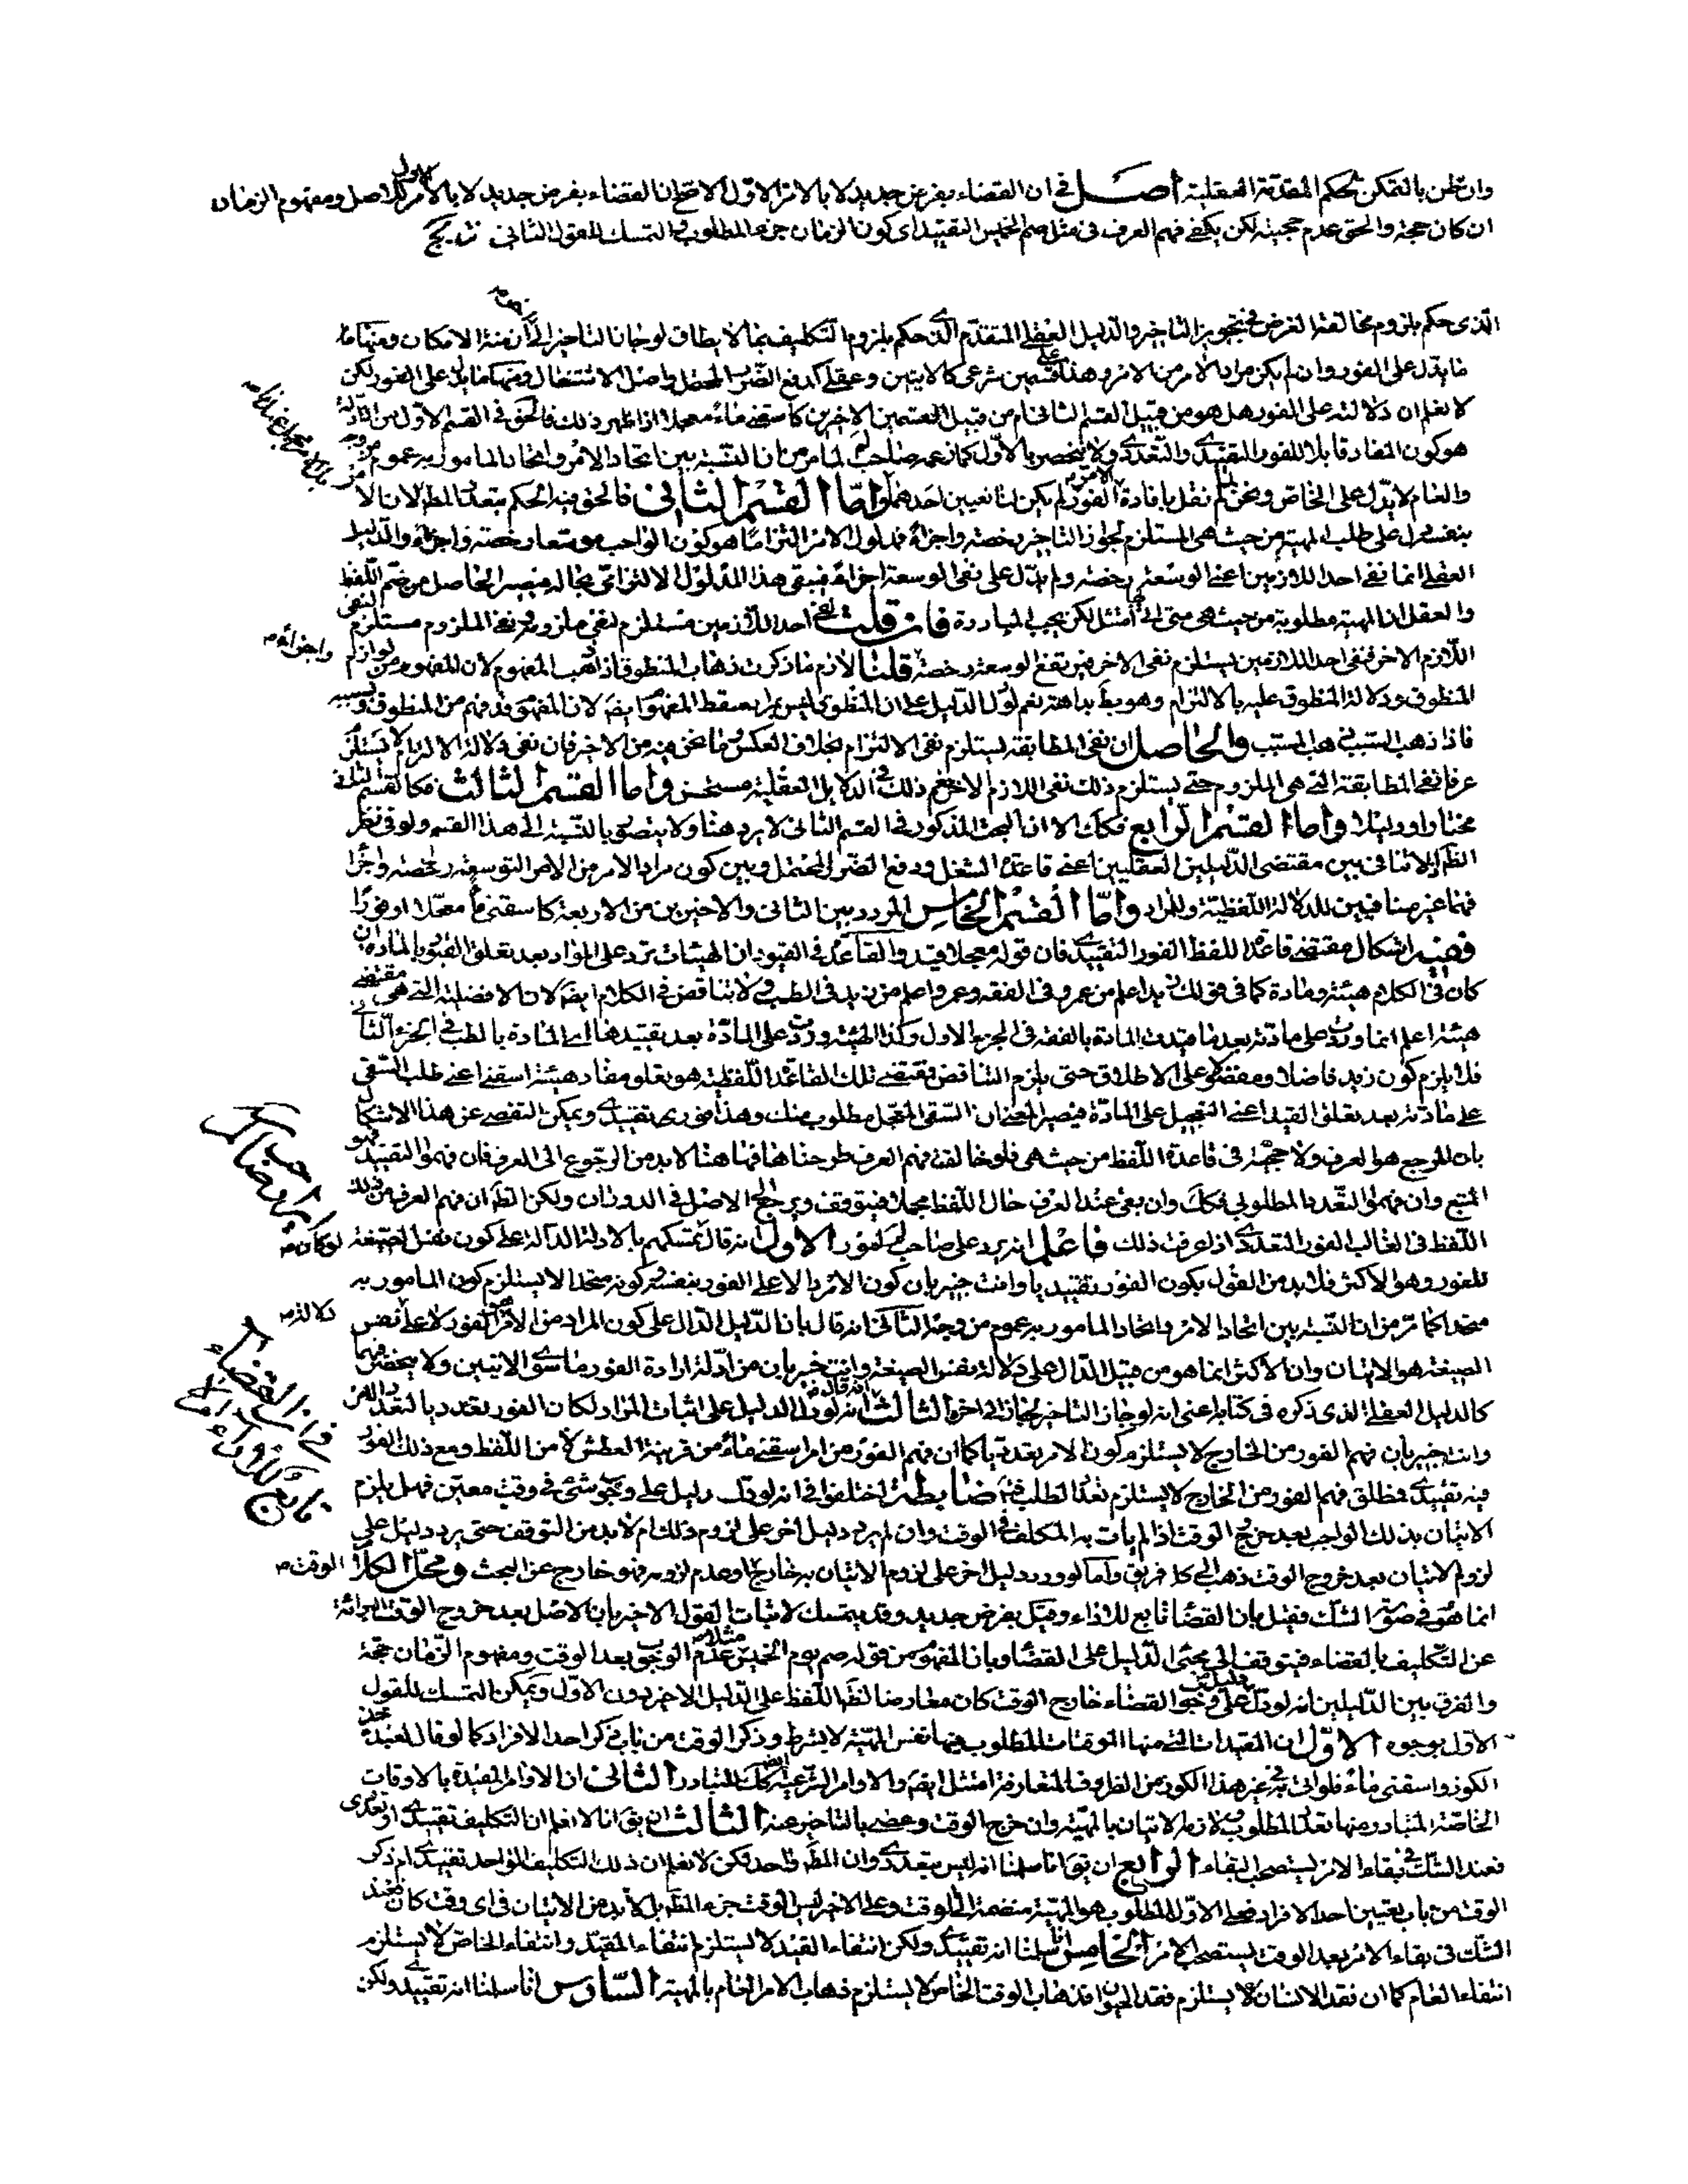 وان ظن بالتمكن بحكم المقدمة العقلية اصل في ان القضاء بفرض جديد لا بالامر الاول الاصح ان القضاء بفرض جديد لا بالامر الاول للاصل ومفهوم الزمان
ان كان حجة والحق عدم حجيته لكن يكفي فهم العرف في مثل صم الخميس التقييد اى كون الزمان جزء المطلوب والتمسك للقول الثانى
الذى حكم بلزوم مخالفة الغرض في تجويز التاخير والدليل العقلي المتقدم الذى حكم بلزوم التكليف بما لا يطاق لو جاز التاخير الى ازمنة الامكان ومنها ما
ما يدل على الفور وان لم يكن مراد الامر من الامر وهذا على قسمين شرعى كالايتين وعقلي كدفع الضرر المحتمل واصل الاشتغال ومنها ما يدل على الفور لكن
لا نعلم ان دلالته على الفور هل هو من قبيل القسم الثانى ام من قبيل القسمين الاخيرين كاسقنى ماء معجلا اذا ظهر ذلك فالحق في القسم الاول من الادلة
هو كون المفاد قابلا للفور التقييدى والتعددى ولا ينحصر بالاول كما زعمه صاحب لم لما مر من ان النسبة بين اتحاد الامر واتحاد المامور به عموم من وجه
والعام لا يدل على الخاص ونحن لم نقل بافادة الامر الفور لم يكن لنا تعيين احدهما واما القسم الثانى فالحق فيه الحكم بتعدد المط لان الامر
بنفسه دل على طلب المهية من حيث هى المستلزم لجواز التاخير رخصة واجزاء فمدلول الامر التزاما هو كون الواجب موسعا رخصة واجزاء والدليل
العقلي انما نفى احد اللازمين اعنى الوسعة رخصة ولم يدل على نفى الوسعة اجزاء فيبقى هذا المدلول الالتزامى بحاله فيصير الحاصل من ضم اللفظ
والعقل ان المهية مطلوبة من حيث هى متى اتى بها امتثل لكن يجب المبادرة فان قلت نفى احد اللازمين مستلزم لنفى ملزومه ونفى الملزوم مستلزم لنفى
اللازم الاخر فنفى احد اللازمين يستلزم نفى الاخر فيرتفع الوسعة رخصة واجزاء قلنا لازم ما ذكرت ذهاب المنطوق اذا ذهب المفهوم لان المفهوم من لوازم
المنطوق ودلالة المنطوق عليه بالالتزام وهو بط بداهة نعم لو دل الدليل على ان المنطوق ليس بمراد سقط المفهوم ايضا لان المفهوم قد فهم من المنطوق وبسببه
فاذا ذهب السبب ذهب المسبب والحاصل ان نفى المطابقة يستلزم نفى الالتزام بخلاف العكس وما نحن فيه من الاخير فان نفى دلالة الالتزام لا يستلزم
عرفا نفى المطابقة التى هى الملزوم حتى يستلزم ذلك نفى اللازم الاخر نعم ذلك في الدلايل العقلية مستحسن واما القسم الثالث فكالقسم الثانى
مختارا ودليلا واما القسم الرابع فكك الا ان البحث المذكور في القسم الثانى لا يرد هنا ولا يتصور بالنسبة الى هذا القسم ولو في نظر
الظاهر اذ لا تنافى بين مقتضى الدليلين العقليين اعنى قاعدة الشغل ودفع الضرر المحتمل وبين كون مراد الامر من الامر التوسعة رخصة واجزاء
فهما غير منافيين للدلالة اللفظية والمراد واما القسم الخامس المردد بين الثانى والاخيرين من الاربعة كاسقنى ماء معجلا او فورا
ففيه اشكال مقتضى قاعدة اللفظ الفور التقييدى فان قوله معجلا قيد والقاعدة في القيود ان الهيئات ترد على المواد بعد تعلق القيود بالمادة ان
كان في الكلام هيئة ومادة كما في قولك زيد اعلم من عمرو في الفقه وعمرو اعلم من زيد في الطب ولا تناقض في الكلام ايضا لان الافضلية التى هى مقتضى
هيئة اعلم انما وردت على مادته بعد ما قيدت المادة بالفقه في الجزء الاول وكذا الهيئة وردت على المادة بعد تقييدها اى المادة بالطب في الجزء الثانى
فلا يلزم كون زيد فاضلا ومفضولا على الاطلاق حتى يلزم التناقض فمقتضى تلك القاعدة اللفظية هو تعلق مفاد هيئة اسقنى اعنى طلب السقى
على مادته بعد تعلق القيد اعنى التعجيل على المادة فيصير المعنى ان السقى المعجل مطلوب منك وهذا فورى تقييدى ويمكن التفصى عن هذا الاشكال
بان المرجع هو العرف ولا حجية في قاعدة اللفظ من حيث هى فلو خالفت فهم العرف طرحناها فها هنا لا بد من الرجوع الى العرف فان فهموا التقييد فهو
المتبع وان فهموا التعدد بالمطلوب فكك وان بقى عند العرف حال اللفظ مجملا فيتوقف ويرجع الى الاصل في الدوران ولكن الظ ان فهم العرف من ذلك
اللفظ في الغالب الفور التعددى اذا عرفت ذلك فاعلم انه يرد على صاحب لم امور الاول انه قال تمسكهم بالادلة الدالة على كون نفس الصيغة لو كان
للفور وهو الاكثر فلا بد من القول بكون الفور تقييديا وانت خبير بان كون الامر دالا على الفور بنفسه وكونه متحدا لا يستلزم كون المامور به
متحدا كما مر من ان النسبة بين اتحاد الامر واتحاد المامور به عموم من وجه الثانى انه قال بان الدليل الدال على كون المراد من الامر هو الفور لا على نفس
الصيغة هو الايتان وان الاكثر انما هو من قبيل الدال على دلالة نفس الصيغة وانت خبير بان من ادلة ارادة الفور ما سوى الايتين ولا ينحصر فيهما
كالدليل العقلي الذى ذكره في كتابه اعنى انه لو جاز التاخير لجاز الى اخره الثالث انه قال لو دل الدليل على اثبات المراد لكان الفور تعدديا
وانت خبير بان فهم الفور من الخارج لا يستلزم كون الامر تعدديا كما ان فهم الفور من امر اسقنى ماء من قرينة العطش لا من اللفظ ومع ذلك الفور
فيه تقييدى فمطلق فهم الفور من الخارج لا يستلزم تعدد الطلب فيه ضابطة اختلفوا في انه لو دل دليل على وجوب شئ في وقت معين فهل يلزم
الاتيان بذلك الواجب بعد خروج الوقت اذا لم يات به المكلف في الوقت وان لم يرد دليل اخر على لزوم ذلك ام لا بد من التوقف حتى يرد دليل على
لزوم الاتيان بعد خروج الوقت ذهب الى كل فريق واما لو ورد دليل اخر على لزوم الاتيان به خارج الوقت او عدم لزومه فهو خارج عن البحث ومحل الكلام
انما هو في صورة الشك فقيل بان القضاء تابع للاداء وقيل بفرض جديد وقد يتمسك لاثبات القول الاخير بان الاصل بعد خروج الوقت البرائة
عن التكليف بالقضاء فيتوقف الى مجئ الدليل على القضاء وبان المفهوم من قوله صم يوم الخميس مثلا عدم الوجوب بعد الوقت ومفهوم الزمان حجة
والفرق بين الدليلين انه لو دل دليل على وجوب القضاء خارج الوقت كان معارضا لظاهر اللفظ على الدليل الاخير دون الاول ويمكن التمسك للقول
الاول بوجوه الاول ان المقيدات التى منها الموقتات المطلوب فيها نفس المهية لا بشرط وذكر الوقت من باب ذكر احد الافراد كما لو قال لعبده خذ
الكوز واسقنى ماء فلو اتى به في غير هذا الكوز من الظروف المتعارفة امتثل ايضا والاوامر الشرعية ايضا كك للتبادر الثانى ان الاوامر المقيدة بالاوقات
الخاصة المتبادر منها تعدد المطلوب فلازمه الاتيان بالمهية وان خرج الوقت وعصى بالتاخير عنه الثالث ان يق انا لا نعلم ان التكليف تقييدى او تعددى
فعند الشك في بقاء الامر يستصحب البقاء الرابع ان يق انا سلمنا انه ليس بتعددى وان المط واحد ولكن لا نعلم ان ذلك التكليف الواحد تقييدى ام ذكر
الوقت من باب تعيين احد الافراد فعلى الاول المطلوب هو المهية منضمة الى الوقت وعلى الاخير ليس الوقت جزء المط بل لا بد من الاتيان في اى وقت كان فعند
الشك في بقاء الامر بعد الوقت يستصحب الامر الخامس انا سلمنا انه تقييدى ولكن انتفاء القيد لا يستلزم انتفاء المقيد وانتفاء الخاص لا يستلزم
انتفاء العام كما ان فقد الانسان لا يستلزم فقد الحيوان فذهاب الوقت الخاص لا يستلزم ذهاب الامر العام بالمهية السادس انا سلمنا انه تقييدى ولكن